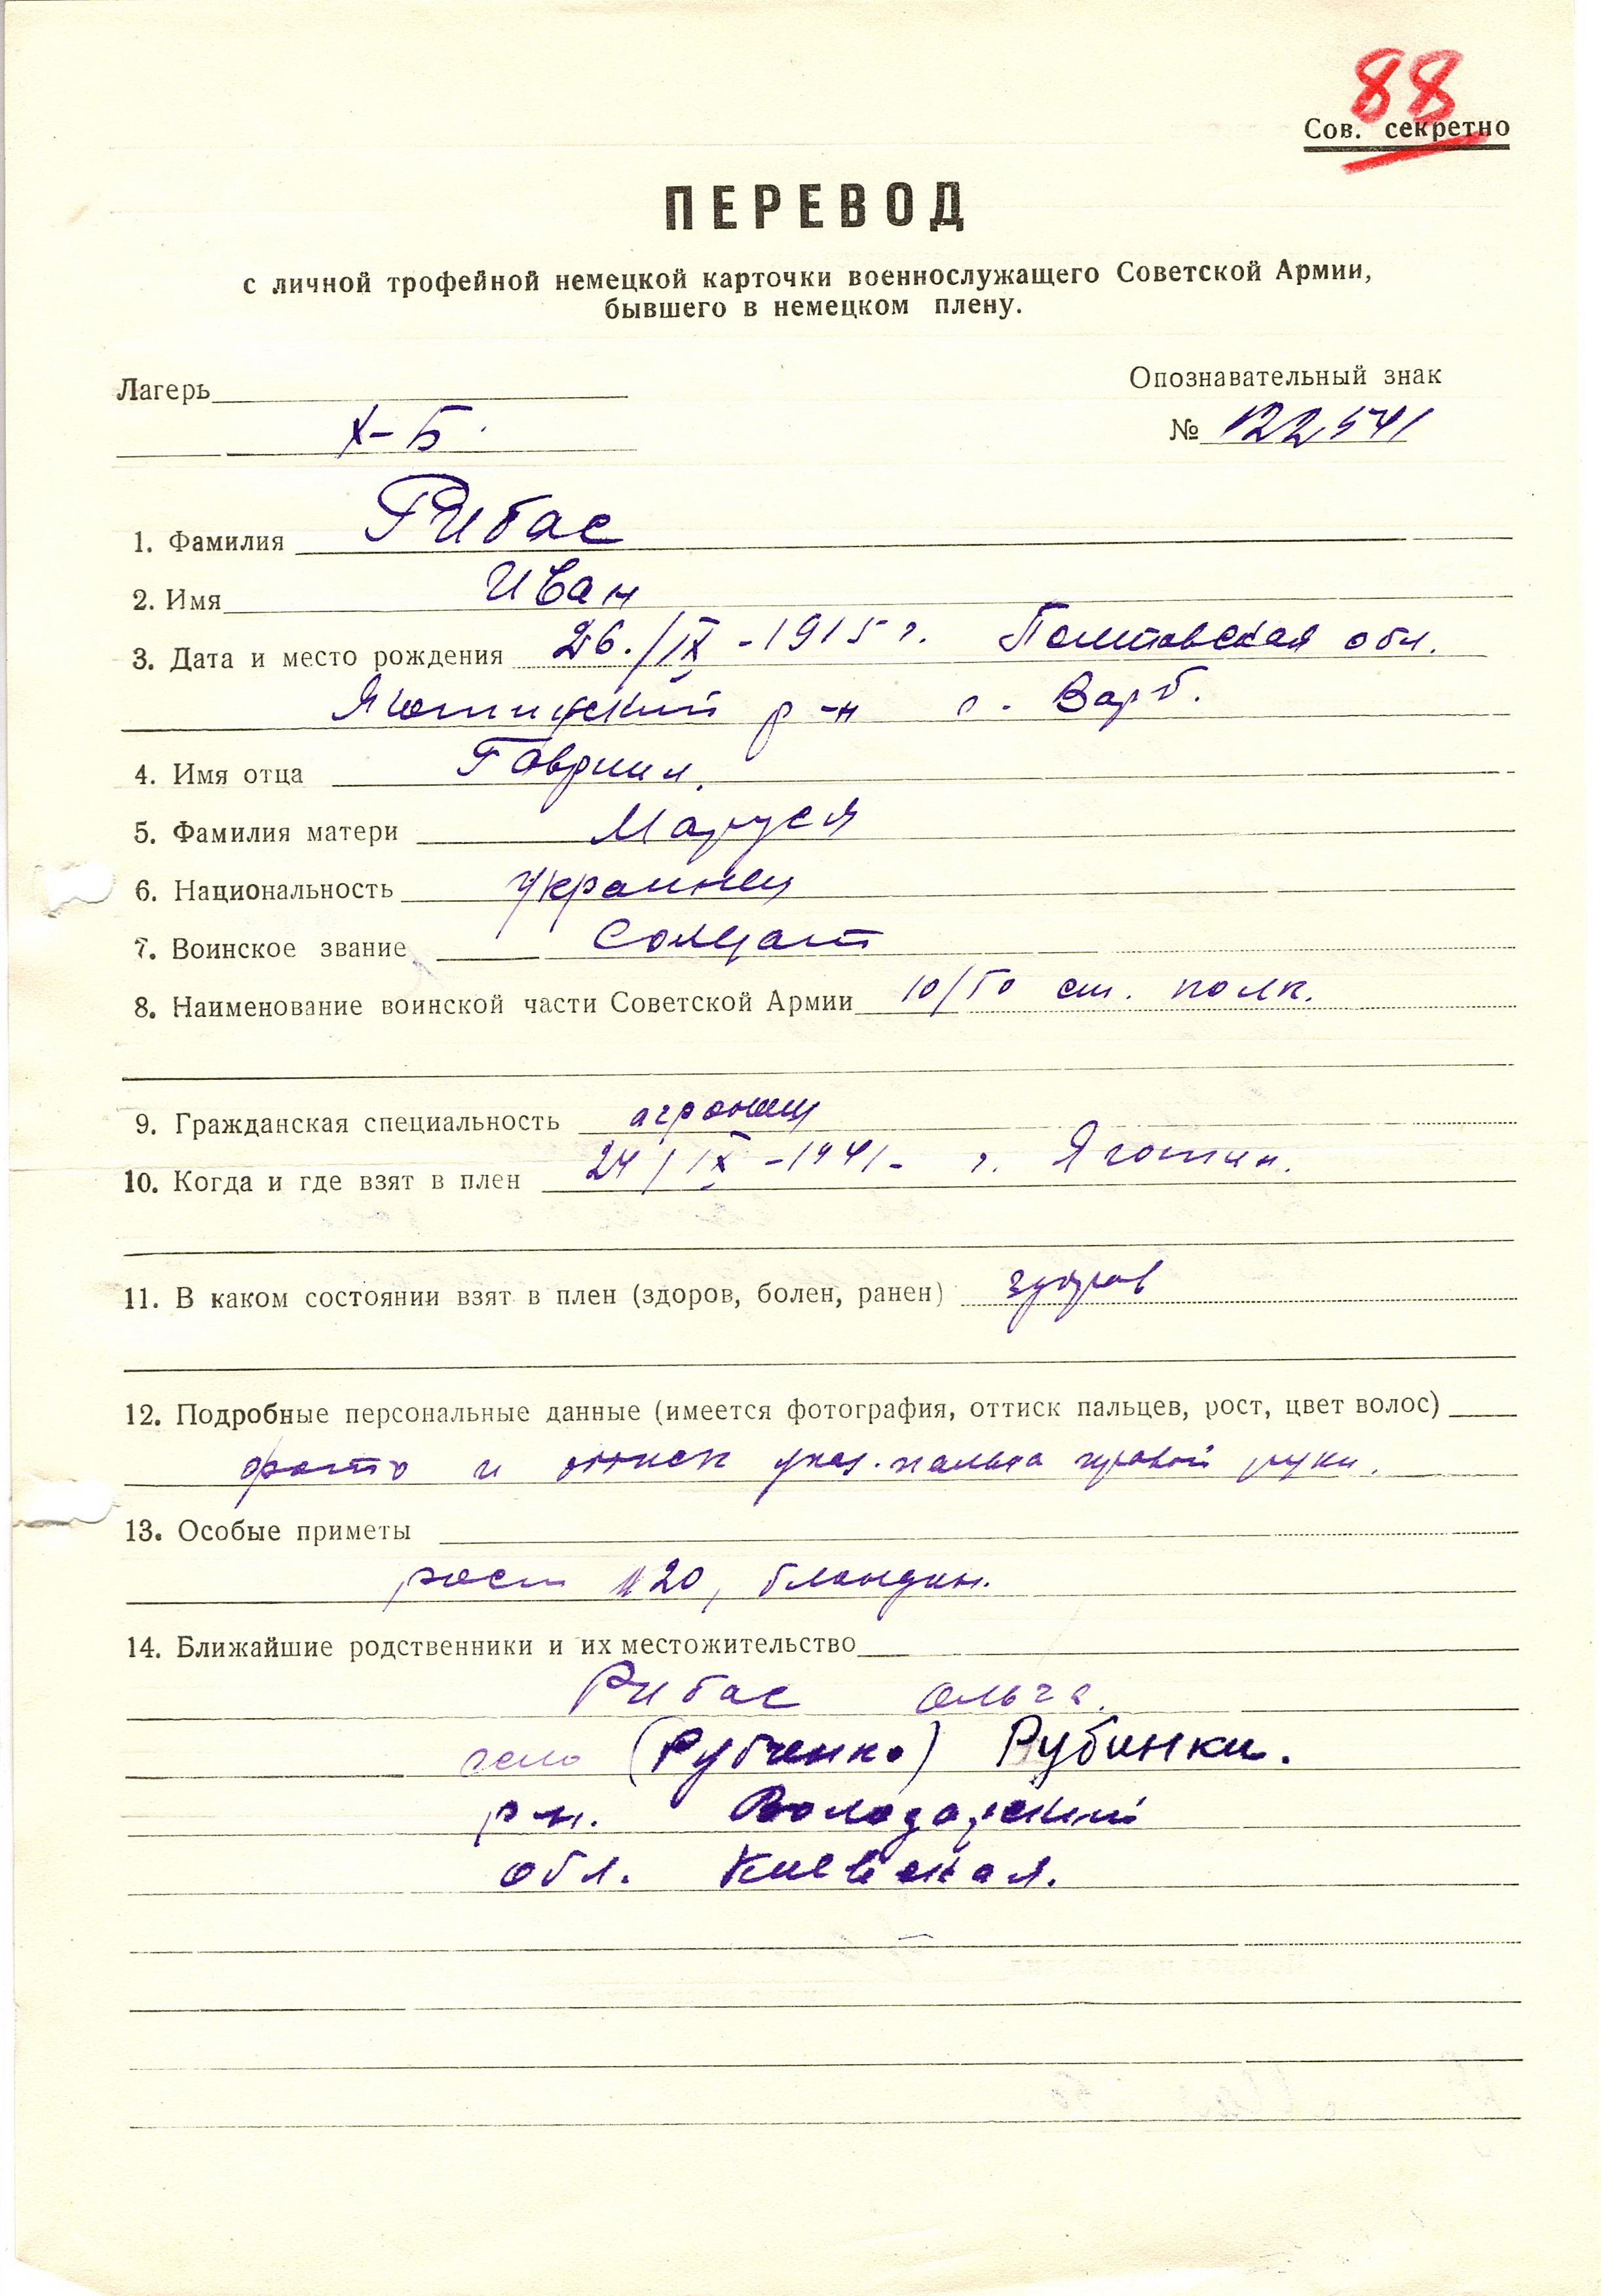 88
Сов. секретно
ПЕРЕВОД
с личной трофейной немецкой карточки военнослужащего Советской Армии,
бывшего в немецком плену.
Лагерь
Опознавательный знак
X-Б.
№ 122541
1. Фамилия Рибас
2. Имя Иван
3. Дата и место рождения 26./IX-1915 г. Полтавская обл.
р-н с. Варб.
4. Имя отца Гавриил
5. Фамилия матери Маруся
6. Национальность украинец
7. Воинское звание солдат
8. Наименование воинской части Советской Армии 10/50 ст. полк.
9. Гражданская специальность
10. Когда и где взят в плен 24/IX-1941- г. Яготин.
11. В каком состоянии взят в плен (здоров, болен, ранен) здоров
12. Подробные персональные данные (имеется фотография, оттиск пальцев, рост, цвет волос)
фото и оттиск указ. пальца правой руки.
13. Особые приметы
рост 120, блондин.
14. Ближайшие родственники и их местожительство
Рибас Ольга.
село (Рубченко) Рубинки.
р-н. Володарский
обл. Киевская.